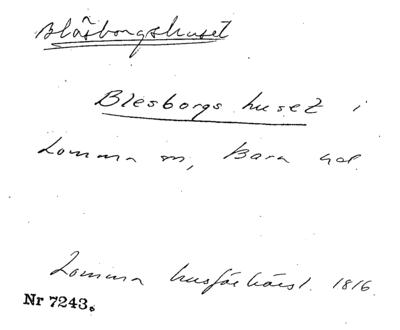 Blåsborgshuset
Blesborgs huset i
Lomma sn, Bara hd.
Lomma husförhörsl. 1816.
Nr 7243.